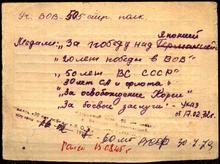 Уч. ВОВ. 505 стр. полк
Японией
Медали: "За победу над Германией"
"20 лет победы в ВОВ"
"50 лет ВС СССР"
30 лет СА и флота
"За освобождение Кореи"
"За боевые заслуги" - указ
от 17.02.38г.
60 лет 30.4.79